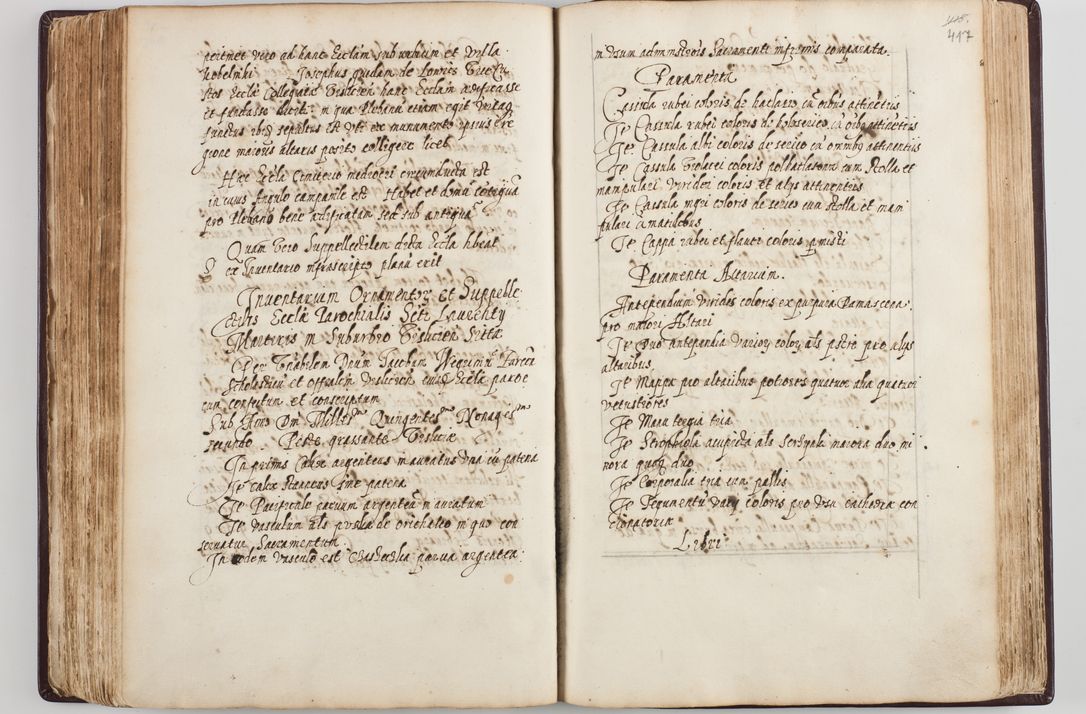 pertinet vero ad hanc Ecclam suburbium et villa
Josephus quidam de Lowicz
Ecclae Collegiatae Visliciens hanc Ecclam aedificasse
et fundasse in qua Plebanu etiam egit
functus ibid sepultus est vti ex munumento ipsius
gione maioris altaris posito colligere licet
Haec Eccla Cimiterio mediocri circumducta est
in cuius Angulo campanile est Habet et domu cotiguã
pro Plebano bene aedificatam sed sub
Quam vero Suppellectilem dicta Eccla hbeat
ex Inventario infrascripto planũ erit
Inuentarium Ornamentor et Suppelle
ctilis Ecclae Parochialis Scti Laurenty
Martyris in Suburbio Visliciens Sitae
Per Nobilem Dnum Jacobum
Scholasticũ et offcialem Vislicien eiusd Ecclae paroc
cum confectum et conscriptum
Sub Anno Dni Milles Quingentes Nonages
secundo Peste grassante Visliciae
In primis Calix argenteus inauratus vna cũ patena
It calix stanneus sine patena
It Pacificale paruum argenteũ inauratum
It Vasculum als puszka de orichalco in quo con
seruatur Sacramentum
In eodem vasculo est parua argentea
417
in vsum administrõis Sacramenti infirmis comparata
Paramenta
Casula rubei coloris de cũ oibus attinetiis
It Cassula rubei coloris de holoserico cũ oibus attinetiis
It Cassula albi coloris de serico cũ omnibus attinentiis
It Cassula violacei coloris cum stolla et
manipulari viridis coloris et alys attinentiis
It Cassula nigri coloris de serico cum stolla et mani
pulari
It Cappa rubei et flaui coloris
Paramenta Altarium
Antependium viridis coloris ex purpura Damascena
pro maiori Altari
It Duo antependia varior color pro alys
altaribus
It Mappae pro altaribus potiores quatuor alia quatuor
vetustiores
It Manu tergia tria
It als maiora duo mi
nora quoq duo
It Corporalia tria cum pallis
It Tegumentũ varij coloris pro vsu cathedrae con
cionatoriae
Libri